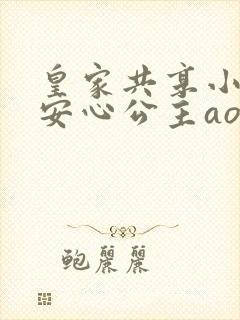 皇家共享小
安心公主ao
鲍麗麗